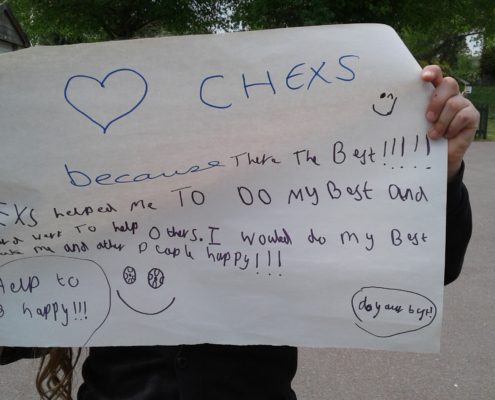 CHEXS
because There The Best!!!!!
EXS helped Me To Do My Best and
want To help Others. I Would do my Best
me and other people happy!!!
Help to
happy!!!
do your best!